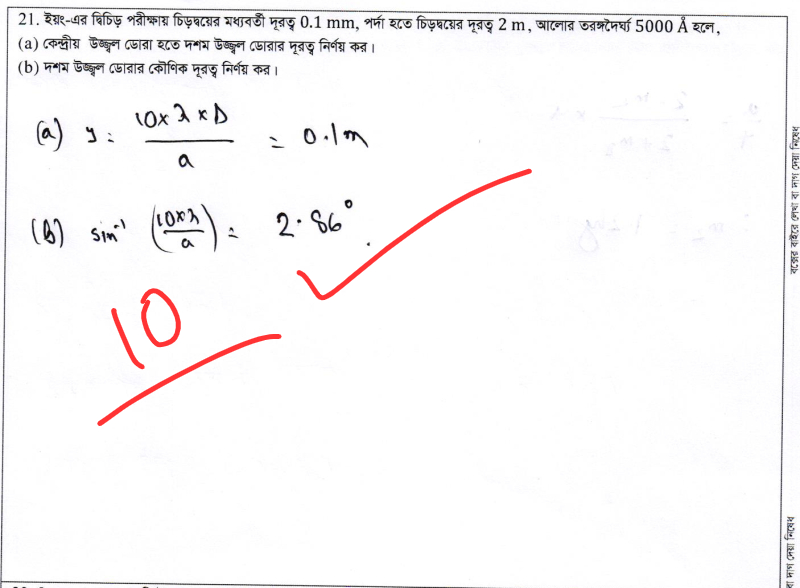 21. ইয়ং-এর দ্বিচিড় পরীক্ষায় চিড়দ্বয়ের মধ্যবর্তী দূরত্ব 0.1 mm, পর্দা হতে চিড়দ্বয়ের দূরত্ব 2 m, আলোর তরঙ্গদৈর্ঘ্য 5000 Å হলে,
(a) কেন্দ্রীয় উজ্জ্বল ডোরা হতে দশম উজ্জ্বল ডোরার দূরত্ব নির্ণয় কর।
(b) দশম উজ্জ্বল ডোরার কৌণিক দূরত্ব নির্ণয় কর।
(a) y = (10 × λ × D)/a = 0.1m
(b) sin⁻¹ ((10×λ)/a) = 2.86°
10
বক্সের বাইরে লেখা বা দাগ দেয়া নিষেধ
বা দাগ দেয়া নিষেধ